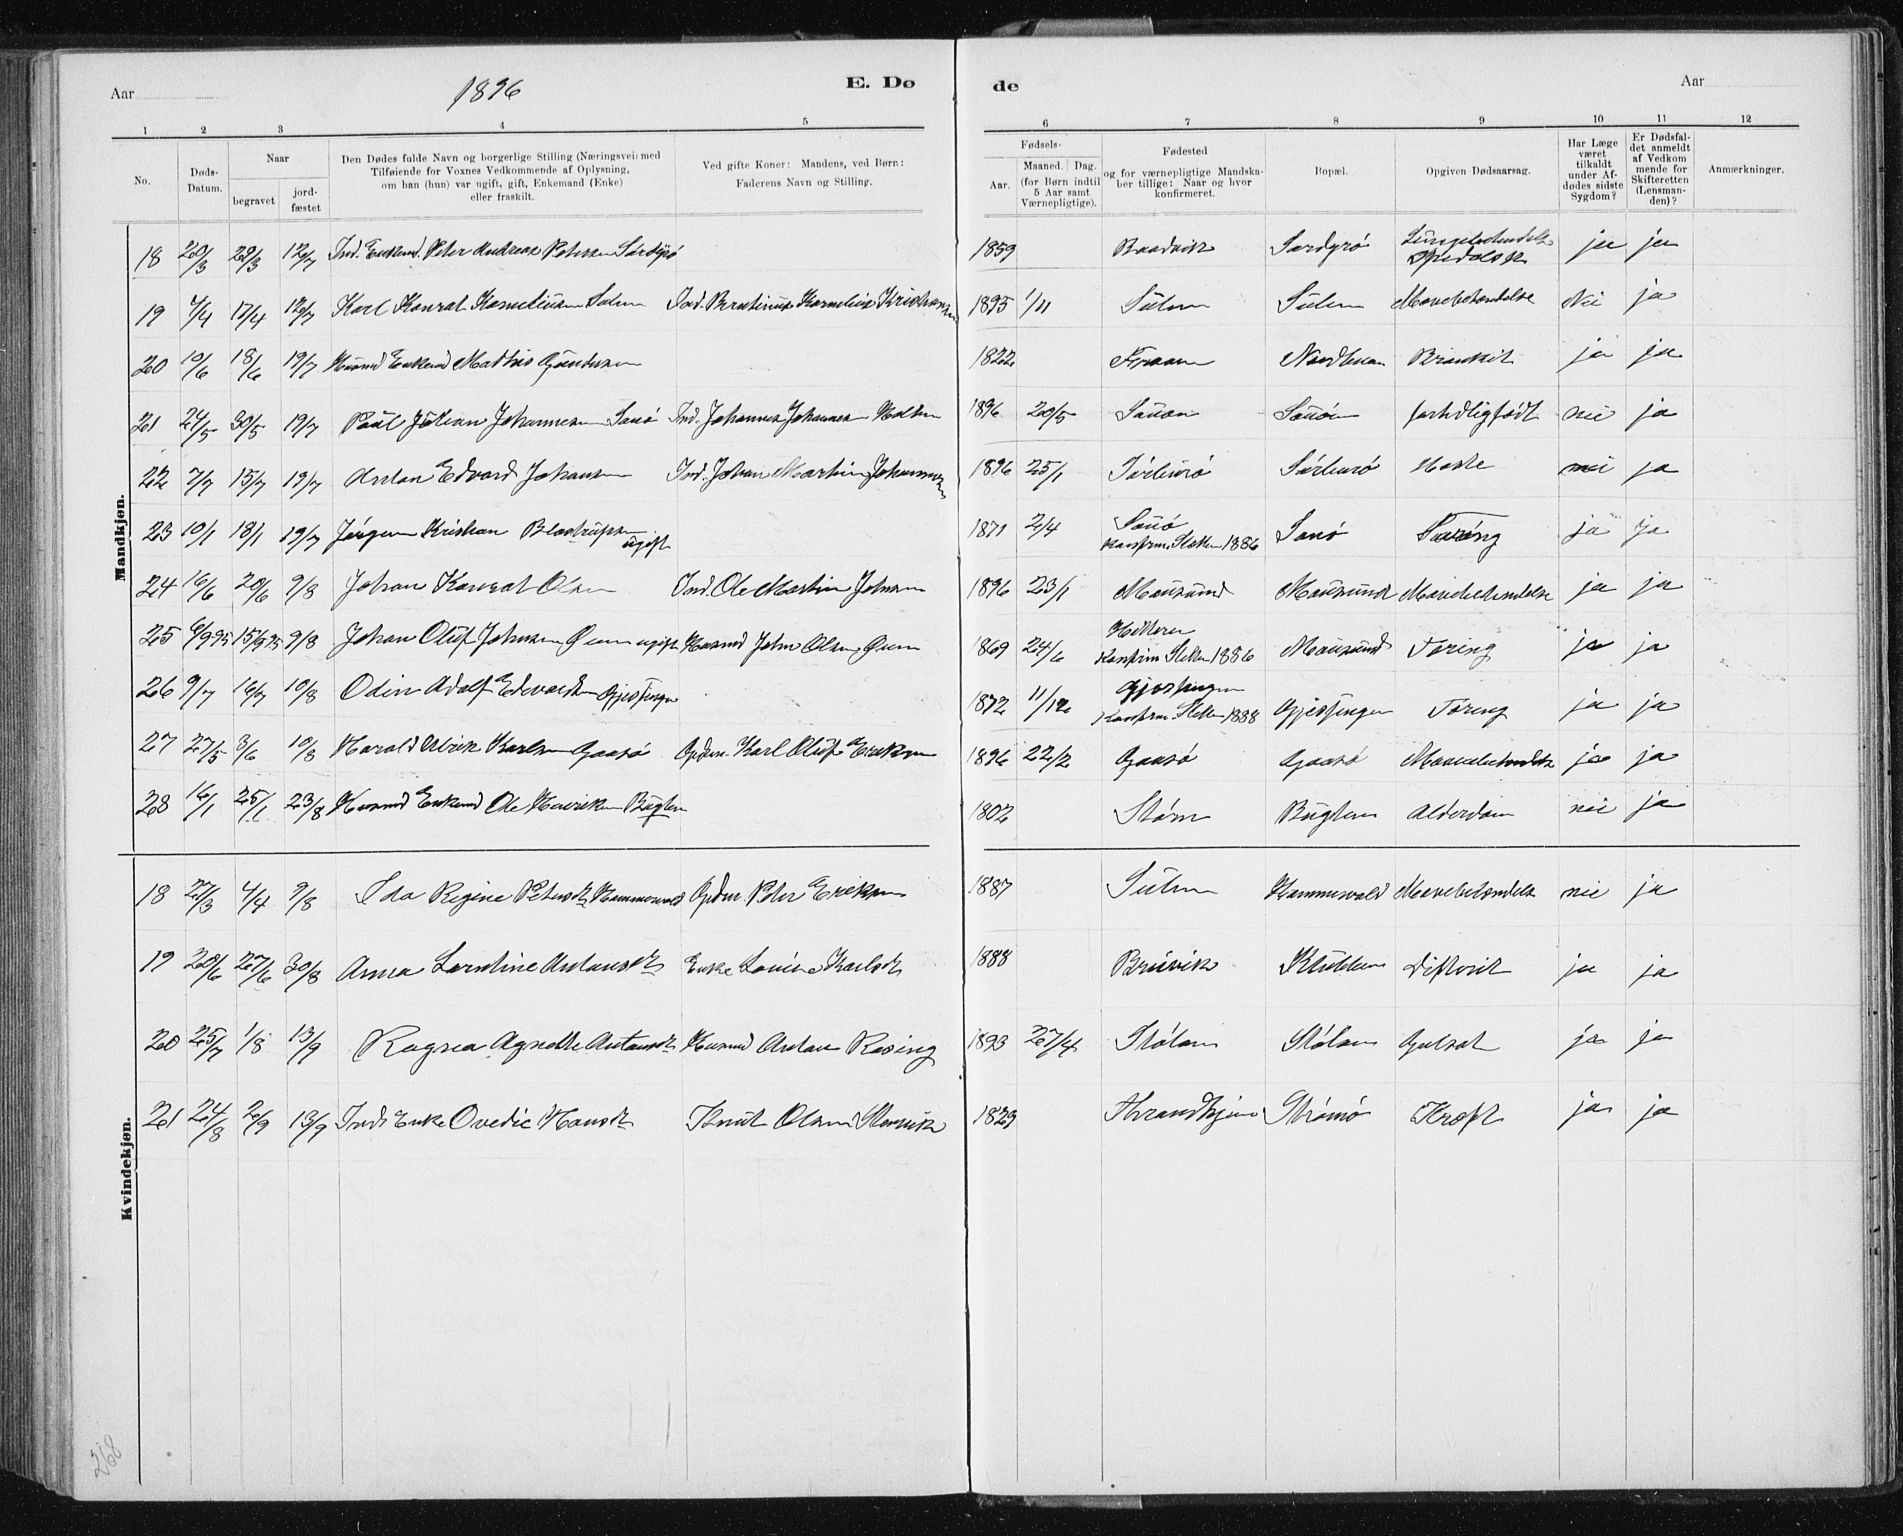 Aar 1896 E. Dø de Aar
1 2 3 4 5 6 7 8 9 10 11 12
No.
Døds-Datum.
Naar
begravet
jord-fæstet
Den Dødes fulde Navn og borgerlige Stilling (Næringsvei) med
Tilføiende for Voxnes Vedkommende af Oplysning,
om han (hun) var ugift, gift, Enkemand (Enke)
eller fraskilt.
Ved gifte Koner: Mandens, ved Børn:
Faderens Navn og Stilling.
Fødsels-
Aar.
Maaned. Dag.
(for Børn indtil
5 Aar samt
Værnepligtige).
Fødested
og for værnepligtige Mandska-
ber tillige: Naar og hvor
konfirmeret.
Bopæl.
Opgiven Dødsaarsag.
Har Læge
været
tilkaldt
under Af-
dødes sidste
Sygdom?
Er Dødsfal-
det anmeldt
af Vedkom
mende for
Skifteretten
(Lensman-
den)?
Anmærkninger.
Mandkjøn.
18 20/3 29/3 12/7 Ind. Enkemd. Peter Andreas Petersen 1859 ja ja
19 7/4 17/4 12/7 Karl Konrat Korneliusen Sulen Ind. Kornelius Kristiansen 1895 1/11 Sulen Sulen Mavebetændelse Nei ja
20 10/6 18/6 19/7 Husmd Enkemd Mathis Gundersen 1822 Nordhuen Bronkit ja ja
21 24/5 30/5 19/7 Paul Julian Johannesen Sauø Ind. Johannes Johannesen Holten 1896 20/5 Sauøen fortidligfødt nei ja
22 7/7 15/7 19/7 Anton Edvard Johansen Ind. Johan Martin Johannesen 1896 25/1 Sørburø Sørburø Hoste nei ja
23 10/1 18/1 19/7 Jørgen Kristian ugift 1871 2/4 Sauø Konfirm. Sletten 1886 Sauø Tæring ja ja
24 16/6 20/6 9/8 Johan Konrat Olsen Ind. Ole Martin Johnsen 1896 23/1 Mausund Mausund Mavebetændelse ja ja
25 6/9 95 15/9 95 9/8 Johan Oluf Johnsen ugift Husmd John Olsen 1869 24/6 Hitteren Konfirm Sletten 1886 Mausund Tæring ja ja
26 9/7 16/7 10/8 Odin Adolf Edvardsen Gjessingen 1872 11/12 Gjessingen Konfirm. Sletten 1888 Gjessingen Tæring ja ja
27 27/5 3/6 10/8 Harald Alrik Karlsen Gaasø Gdm. Karl Oluf Eriksen 1896 22/2 Gaasø Gaasø Mavebetændelse ja ja
28 16/1 25/1 23/8 Husmd Enkemd Ole Bugten 1802 Størn Bugten Alderdom nei ja
Kvindekjøn.
18 27/3 4/4 9/8 Ida Regine Petersdt. Hammervold Gdm. Peter Eriksen 1887 Sulen Hammervold Mavebetændelse nei ja
19 20/6 27/6 30/8 Anna Larntine Antonsdt. Enke Lovise Karlsdt 1888 Bruvik Klubben Difterit ja ja
20 25/7 1/8 13/9 Ragna Agnethe Antonsdt. Husmd Anton Rosing 1893 27/4 Stølan Stølan Gulsot ja ja
21 24/8 2/9 13/9 Inds Enke Ovedie Hansdt. Knut Olsen 1829 Throndhjem Strømø Kræft ja ja
268